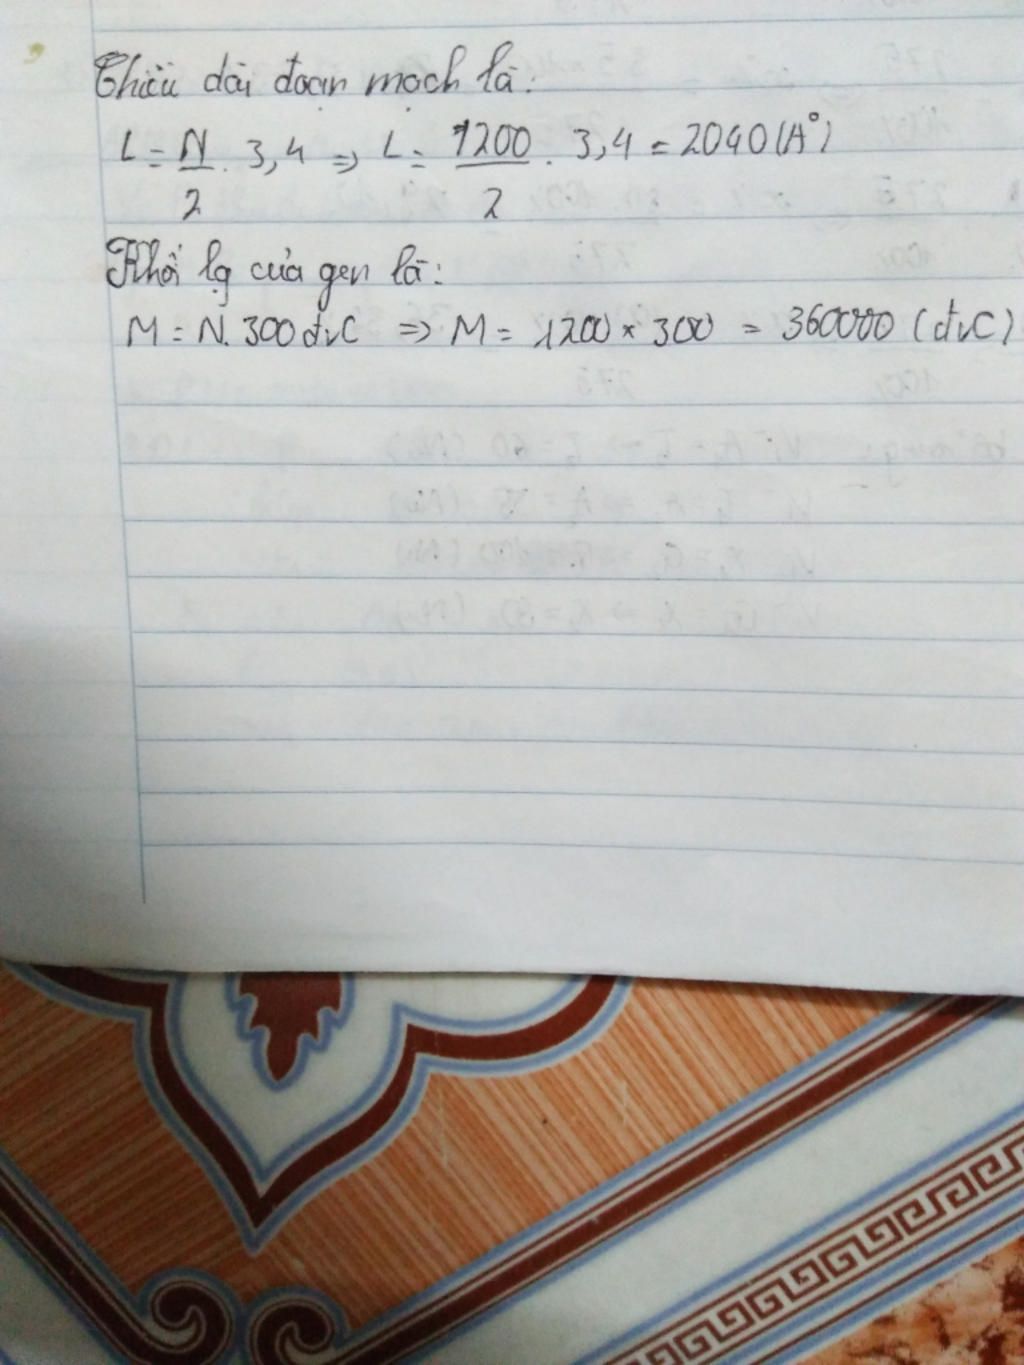 Chiều dài đoạn mạch là:
L = N/2 . 3,4 => L = 1200/2 . 3,4 = 2040 (A°)
Khối lg của gen là:
M = N. 300 đvC => M = 1200 × 300 = 360000 (đvC)